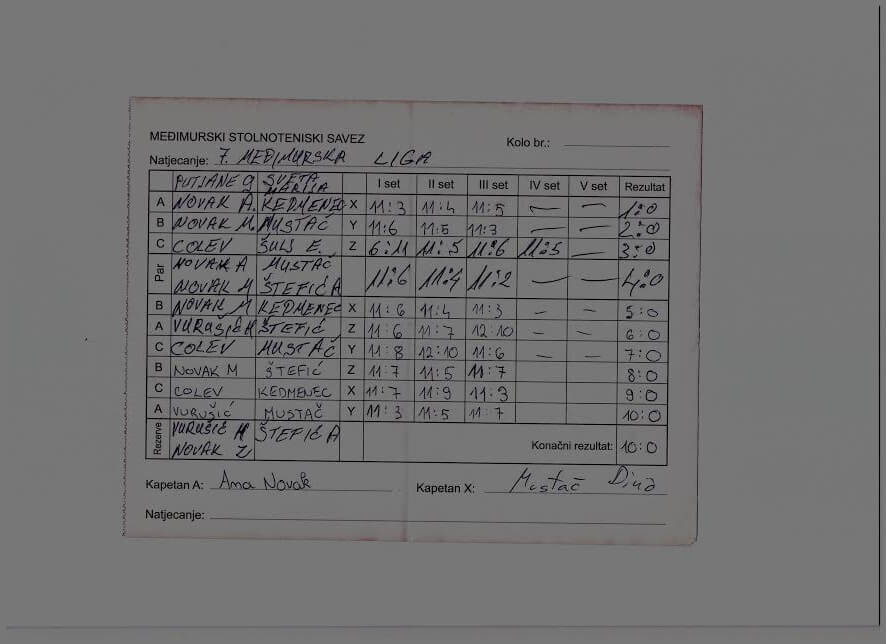 MEĐIMURSKI STOLNOTENISKI SAVEZ
Kolo br.:
Natjecanje: 7. MEĐIMURSKA LIGA
PUTJANE G SVETA MARIJA I set II set III set IV set V set Rezultat
A NOVAK A. KEDMENEC X 11:3 11:4 11:5 — — 1:0
B NOVAK M. MUSTAČ Y 11:6 11:5 11:3 — — 2:0
C COLEV ŠULJ E. Z 6:11 11:5 11:6 11:5 — 3:0
Par NOVAK A MUSTAČ
NOVAK M ŠTEFIĆ A 11:6 11:4 11:2 — — 4:0
B NOVAK M KEDMENEC X 11:6 11:4 11:3 — — 5:0
A VURUŠIĆ M ŠTEFIĆ Z 11:6 11:7 12:10 — — 6:0
C COLEV MUSTAČ Y 11:8 12:10 11:6 — — 7:0
B NOVAK M ŠTEFIĆ Z 11:7 11:5 11:7 8:0
C COLEV KEDMENEC X 11:7 11:9 11:3 9:0
A VURUŠIĆ MUSTAČ Y 11:3 11:5 11:7 10:0
Rezerve VURUŠIĆ M ŠTEFIĆ A
NOVAK Z Konačni rezultat: 10:0
Kapetan A: Ana Novak Kapetan X: Mustač Dino
Natjecanje: